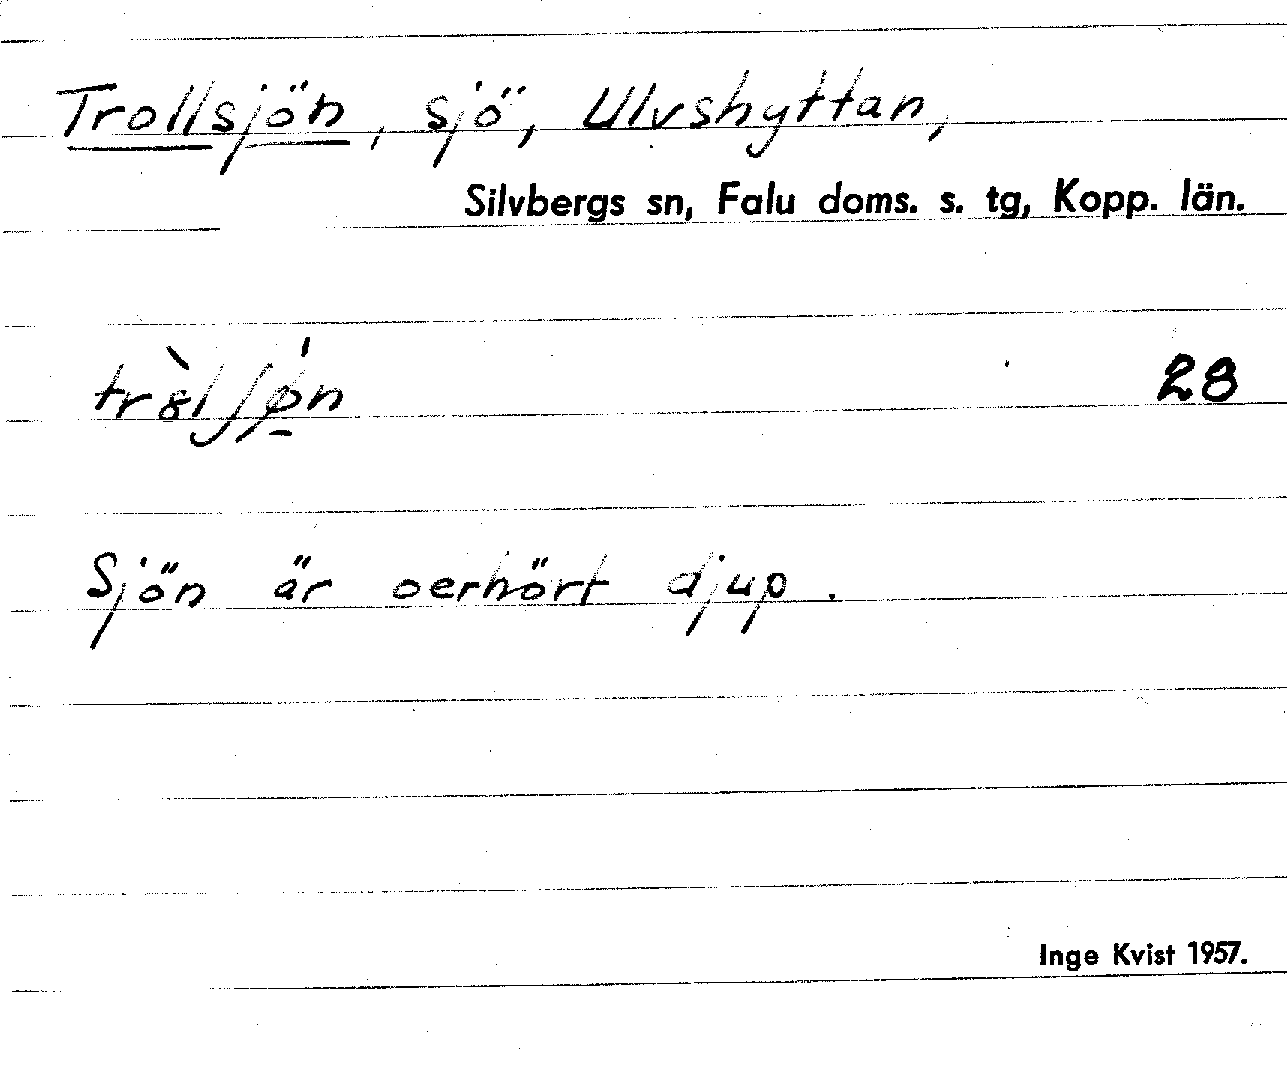 Trollsjön, sjö, Ulvshyttan,
Silvbergs sn, Falu doms. s. tg, Kopp. län.
28
Sjön är oerhört djup.
Inge Kvist 1957.